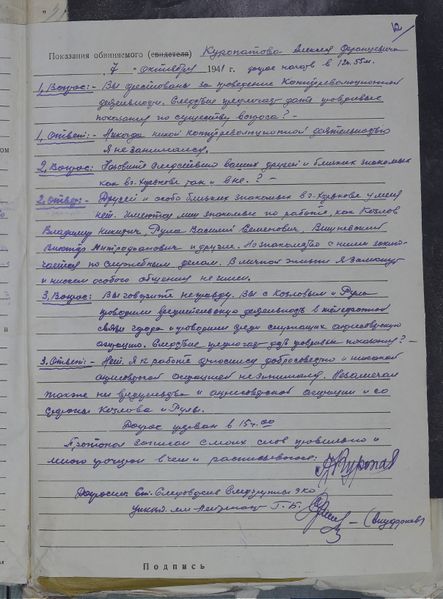 12
Показания обвиняемого (свидетеля) Куропатова Алексея
7 октября 1941 г. допрос начат в 12ч. 55м.
1, Вопрос:- Вы арестованы за проведение контрреволюционной
деятельности. Следствие предлагает дать правдивые
показания по существу вопроса? -
1, Ответ:- Никогда никой контрреволюционной деятельностью
я не занимался.
2, Вопрос: Назовите следствию ваших друзей и близких знакомых
как в г. Харькове так и вне. ? -
2. Ответ:- Друзей и особо близких знакомых в г. Харькове у меня
нет. Имеются лишь знакомые по работе, как Козлов
Владимир Руга Василий Семенович,
Виктор Митрофанович и другие. Взнакомство с ними
по служебным делам. В личной жизни я замкнут
и никаких особого общения не имел.
3. Вопрос: Вы говорите неправду. Вы с Козловым и Руга
проводили деятельность в
связи города и проводили среди антисоветскую
агитацию. Следствие предлагает дать правдивые показания? -
3. Ответ:- Нет. Я к работе относился добросовестно и никакой
антисоветской агитацией не занимался. Не замечал
также и антисоветской агитации и со
стороны Козлова и Руги.
Допрос прерван в 15ч. 00
Протокол записан с моих слов правильно и
мною прочитан в чем и расписываюсь.
Куропат
Допросил Ст. Следователь Следгруппы ЭКО
мл. лейтенант Г.Б.
Подпись